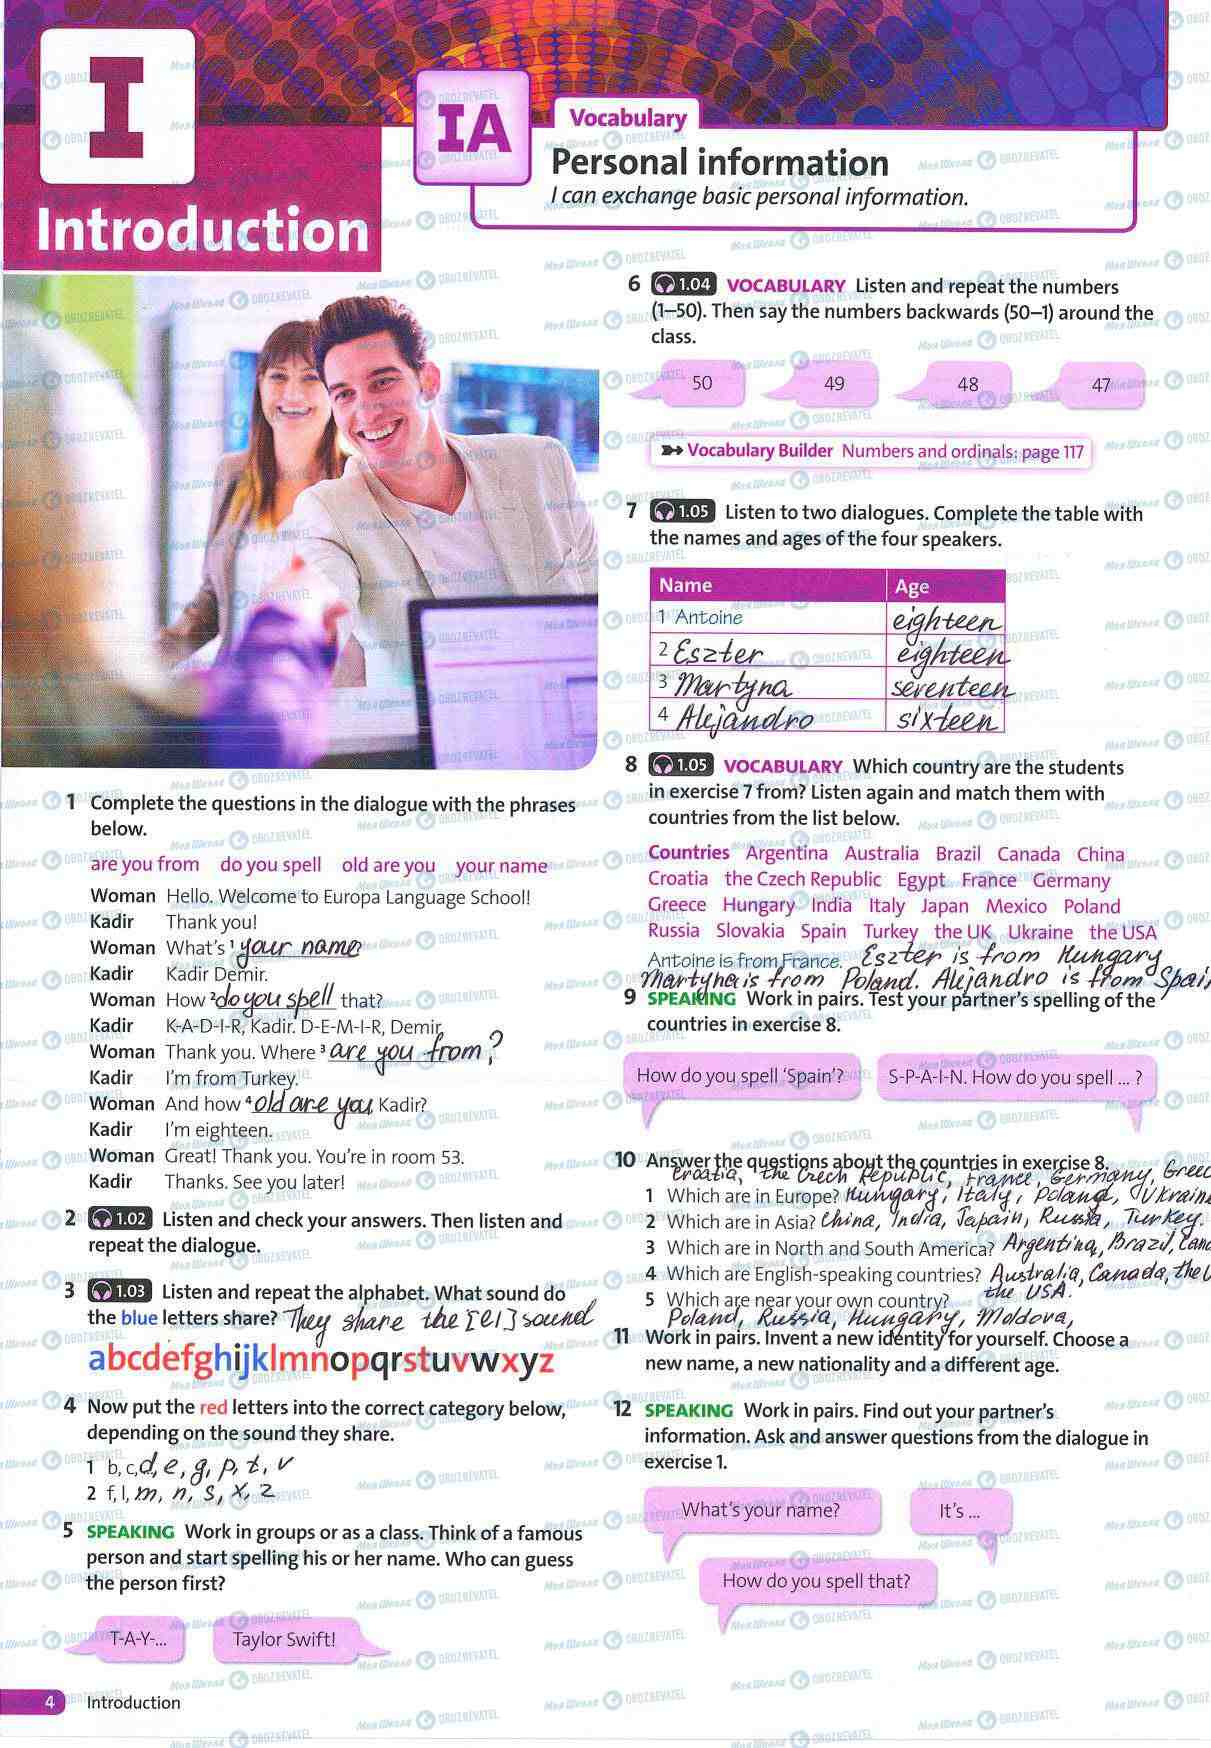 I
Introduction
IA
Vocabulary
Personal information
I can exchange basic personal information.
1 Complete the questions in the dialogue with the phrases
below.
are you from do you spell old are you your name
Woman Hello. Welcome to Europa Language School!
Kadir Thank you!
Woman What's ¹ your name?
Kadir Kadir Demir.
Woman How ² do you spell that?
Kadir K-A-D-I-R, Kadir. D-E-M-I-R, Demir.
Woman Thank you. Where ³ are you from?
Kadir I'm from Turkey.
Woman And how ⁴ old are you, Kadir?
Kadir I'm eighteen.
Woman Great! Thank you. You're in room 53.
Kadir Thanks. See you later!
2 1.02 Listen and check your answers. Then listen and
repeat the dialogue.
3 1.03 Listen and repeat the alphabet. What sound do
the blue letters share? They share the [ei] sound
abcdefghijklmnopqrstuvwxyz
4 Now put the red letters into the correct category below,
depending on the sound they share.
1 b, c, d, e, g, p, t, v
2 f, l, m, n, s, x, z
5 SPEAKING Work in groups or as a class. Think of a famous
person and start spelling his or her name. Who can guess
the person first?
T-A-Y-... Taylor Swift!
4 Introduction
6 1.04 VOCABULARY Listen and repeat the numbers
(1–50). Then say the numbers backwards (50–1) around the
class.
50 49 48 47
Vocabulary Builder Numbers and ordinals: page 117
7 1.05 Listen to two dialogues. Complete the table with
the names and ages of the four speakers.
Name Age
1 Antoine eighteen
2 Eszter eighteen
3 Martyna seventeen
4 Alejandro sixteen
8 1.05 VOCABULARY Which country are the students
in exercise 7 from? Listen again and match them with
countries from the list below.
Countries Argentina Australia Brazil Canada China
Croatia the Czech Republic Egypt France Germany
Greece Hungary India Italy Japan Mexico Poland
Russia Slovakia Spain Turkey the UK Ukraine the USA
Antoine is from France. Eszter is from Hungary
Martyna is from Poland. Alejandro is from Spai
9 SPEAKING Work in pairs. Test your partner's spelling of the
countries in exercise 8.
How do you spell 'Spain'? S-P-A-I-N. How do you spell ... ?
10 Answer the questions about the countries in exercise 8.
Croatia, the Czech Republic, France, Germany, Greec
1 Which are in Europe? Hungary, Italy, Poland, Ukraine
2 Which are in Asia? China, India, Japain, Russia, Turkey.
3 Which are in North and South America? Argentina, Brazil, Cana
4 Which are English-speaking countries? Australia, Canada, the U
the USA.
5 Which are near your own country?
Poland, Russia, Hungary, Moldova,
11 Work in pairs. Invent a new identity for yourself. Choose a
new name, a new nationality and a different age.
12 SPEAKING Work in pairs. Find out your partner's
information. Ask and answer questions from the dialogue in
exercise 1.
What's your name? It's ...
How do you spell that?
Моя Школа OBOZREVATEL